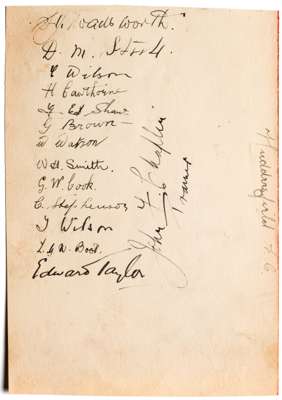 H. Roadsworth.
D. M. Steele.
C Wilson
H Cawthorne
G. Ed Shaw
G Brown
W Watson
W H. Smith.
G. W. Cook.
C. Stephenson
J Wilson
L. G. W. Boot.
Edward Taylor
John F Chaplin
Trainer
Huddersfield F C